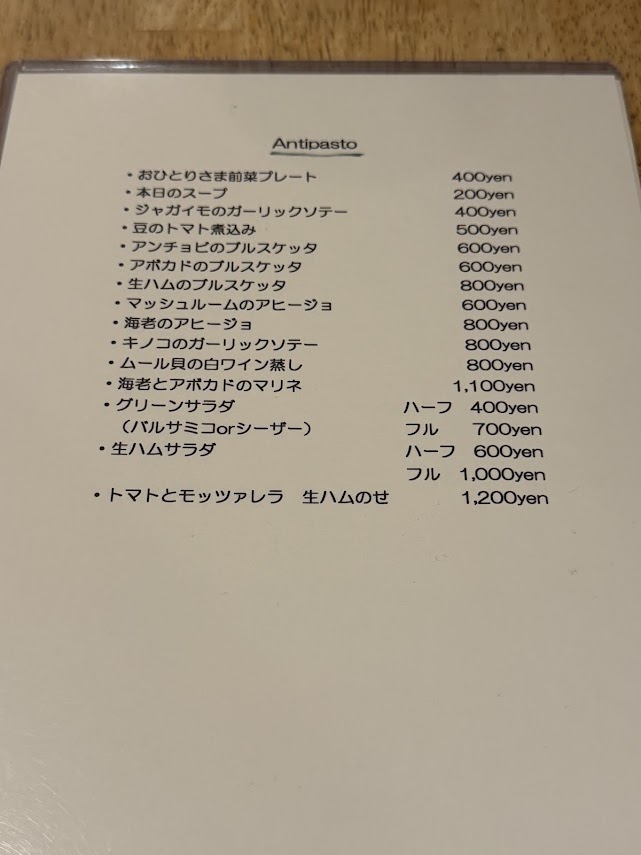 Antipasto
・おひとりさま前菜プレート 400yen
・本日のスープ 200yen
・ジャガイモのガーリックソテー 400yen
・豆のトマト煮込み 500yen
・アンチョビのブルスケッタ 600yen
・アボカドのブルスケッタ 600yen
・生ハムのブルスケッタ 800yen
・マッシュルームのアヒージョ 600yen
・海老のアヒージョ 800yen
・キノコのガーリックソテー 800yen
・ムール貝の白ワイン蒸し 800yen
・海老とアボカドのマリネ 1,100yen
・グリーンサラダ ハーフ 400yen
（バルサミコorシーザー） フル 700yen
・生ハムサラダ ハーフ 600yen
フル 1,000yen
・トマトとモッツァレラ 生ハムのせ 1,200yen